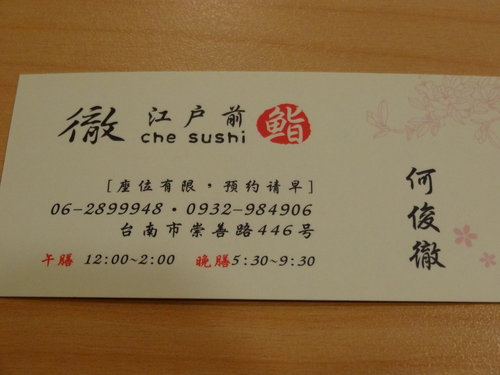 徹 江戸前 鮨
che sushi
[座位有限，預約請早]
06-2899948·0932-984906
台南市崇善路446号
午膳 12:00~2:00 晚膳5:30~9:30
何俊徹